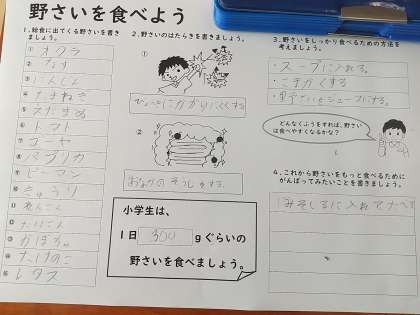 野さいを食べよう
1．給食に出てくる野さいを書き
ましょう。
① オクラ
② なす
③ にんじん
④ たまねぎ
⑤ えだまめ
⑥ トマト
⑦ ゴーヤ
⑧ パプリカ
⑨ ピーマン
⑩ きゅうり
⑪
⑫
⑬ かぼちゃ
⑭ たけのこ
⑮ レタス
2．野さいのはたらきを書きましょう。
①
びょうきにかかりにくくする
②
おなかのそうじをする
小学生は、
1日 300 gぐらいの
野さいを食べましょう。
3．野さいをしっかり食べるための方法を
考えましょう。
・スープに入れる。
・こまかくする
・野さいをジュースにする。
どんなくふうをすれば、野さい
は食べやすくなるかな？
4．これから野さいをもっと食べるために
がんばってみたいことを書きましょう。
みそしるに入れてたべる